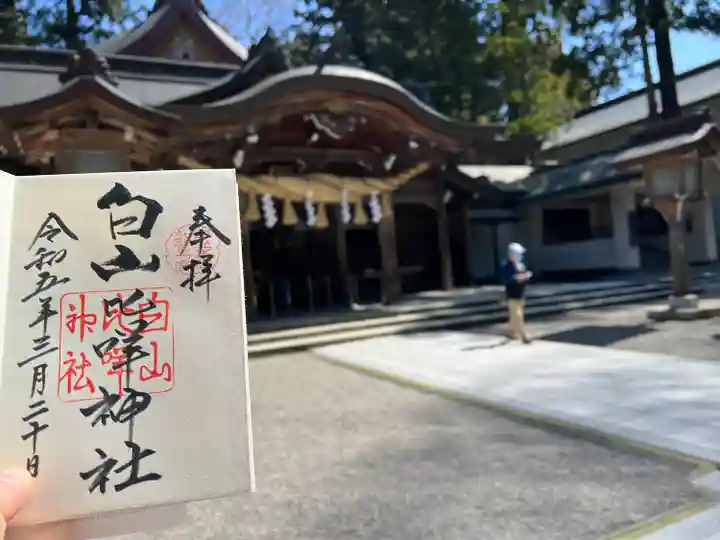 奉拝
白山比咩神社
白山
比咩
神社
令和五年三月二十日